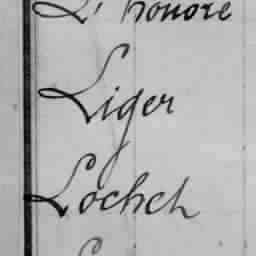 L'honoré
Liger
Lochet